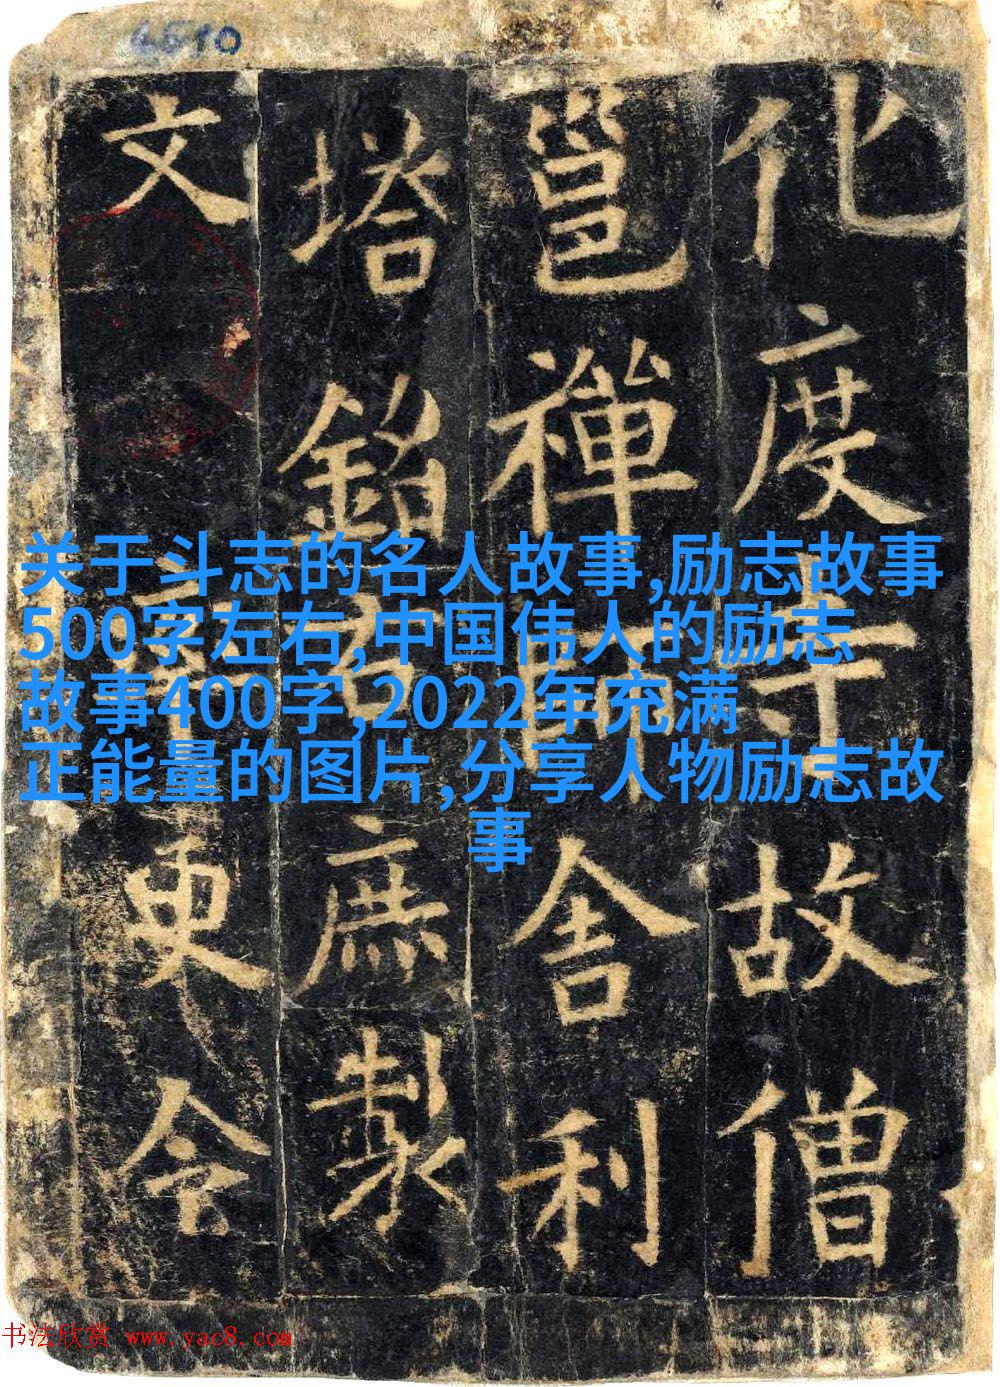 化度寺故僧
邕禪師舍利
塔銘右庶製
文更令
关于斗志的名人故事,励志故事
500字左右,中国伟人的励志
故事400字,2022年充满
正能量的图片,分享人物励志故
事
书法欣赏 www.yac8.com